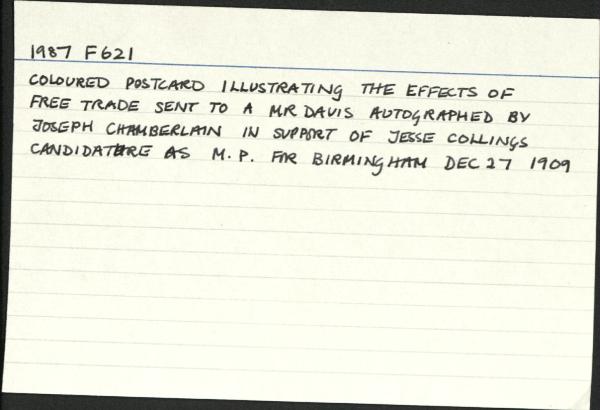 1987 F621
COLOURED POSTCARD ILLUSTRATING THE EFFECTS OF
FREE TRADE SENT TO A MR DAVIS AUTOGRAPHED BY
JOSEPH CHAMBERLAIN IN SUPPORT OF JESSE COLLINGS
CANDIDATURE AS M.P. FOR BIRMINGHAM DEC 27 1909